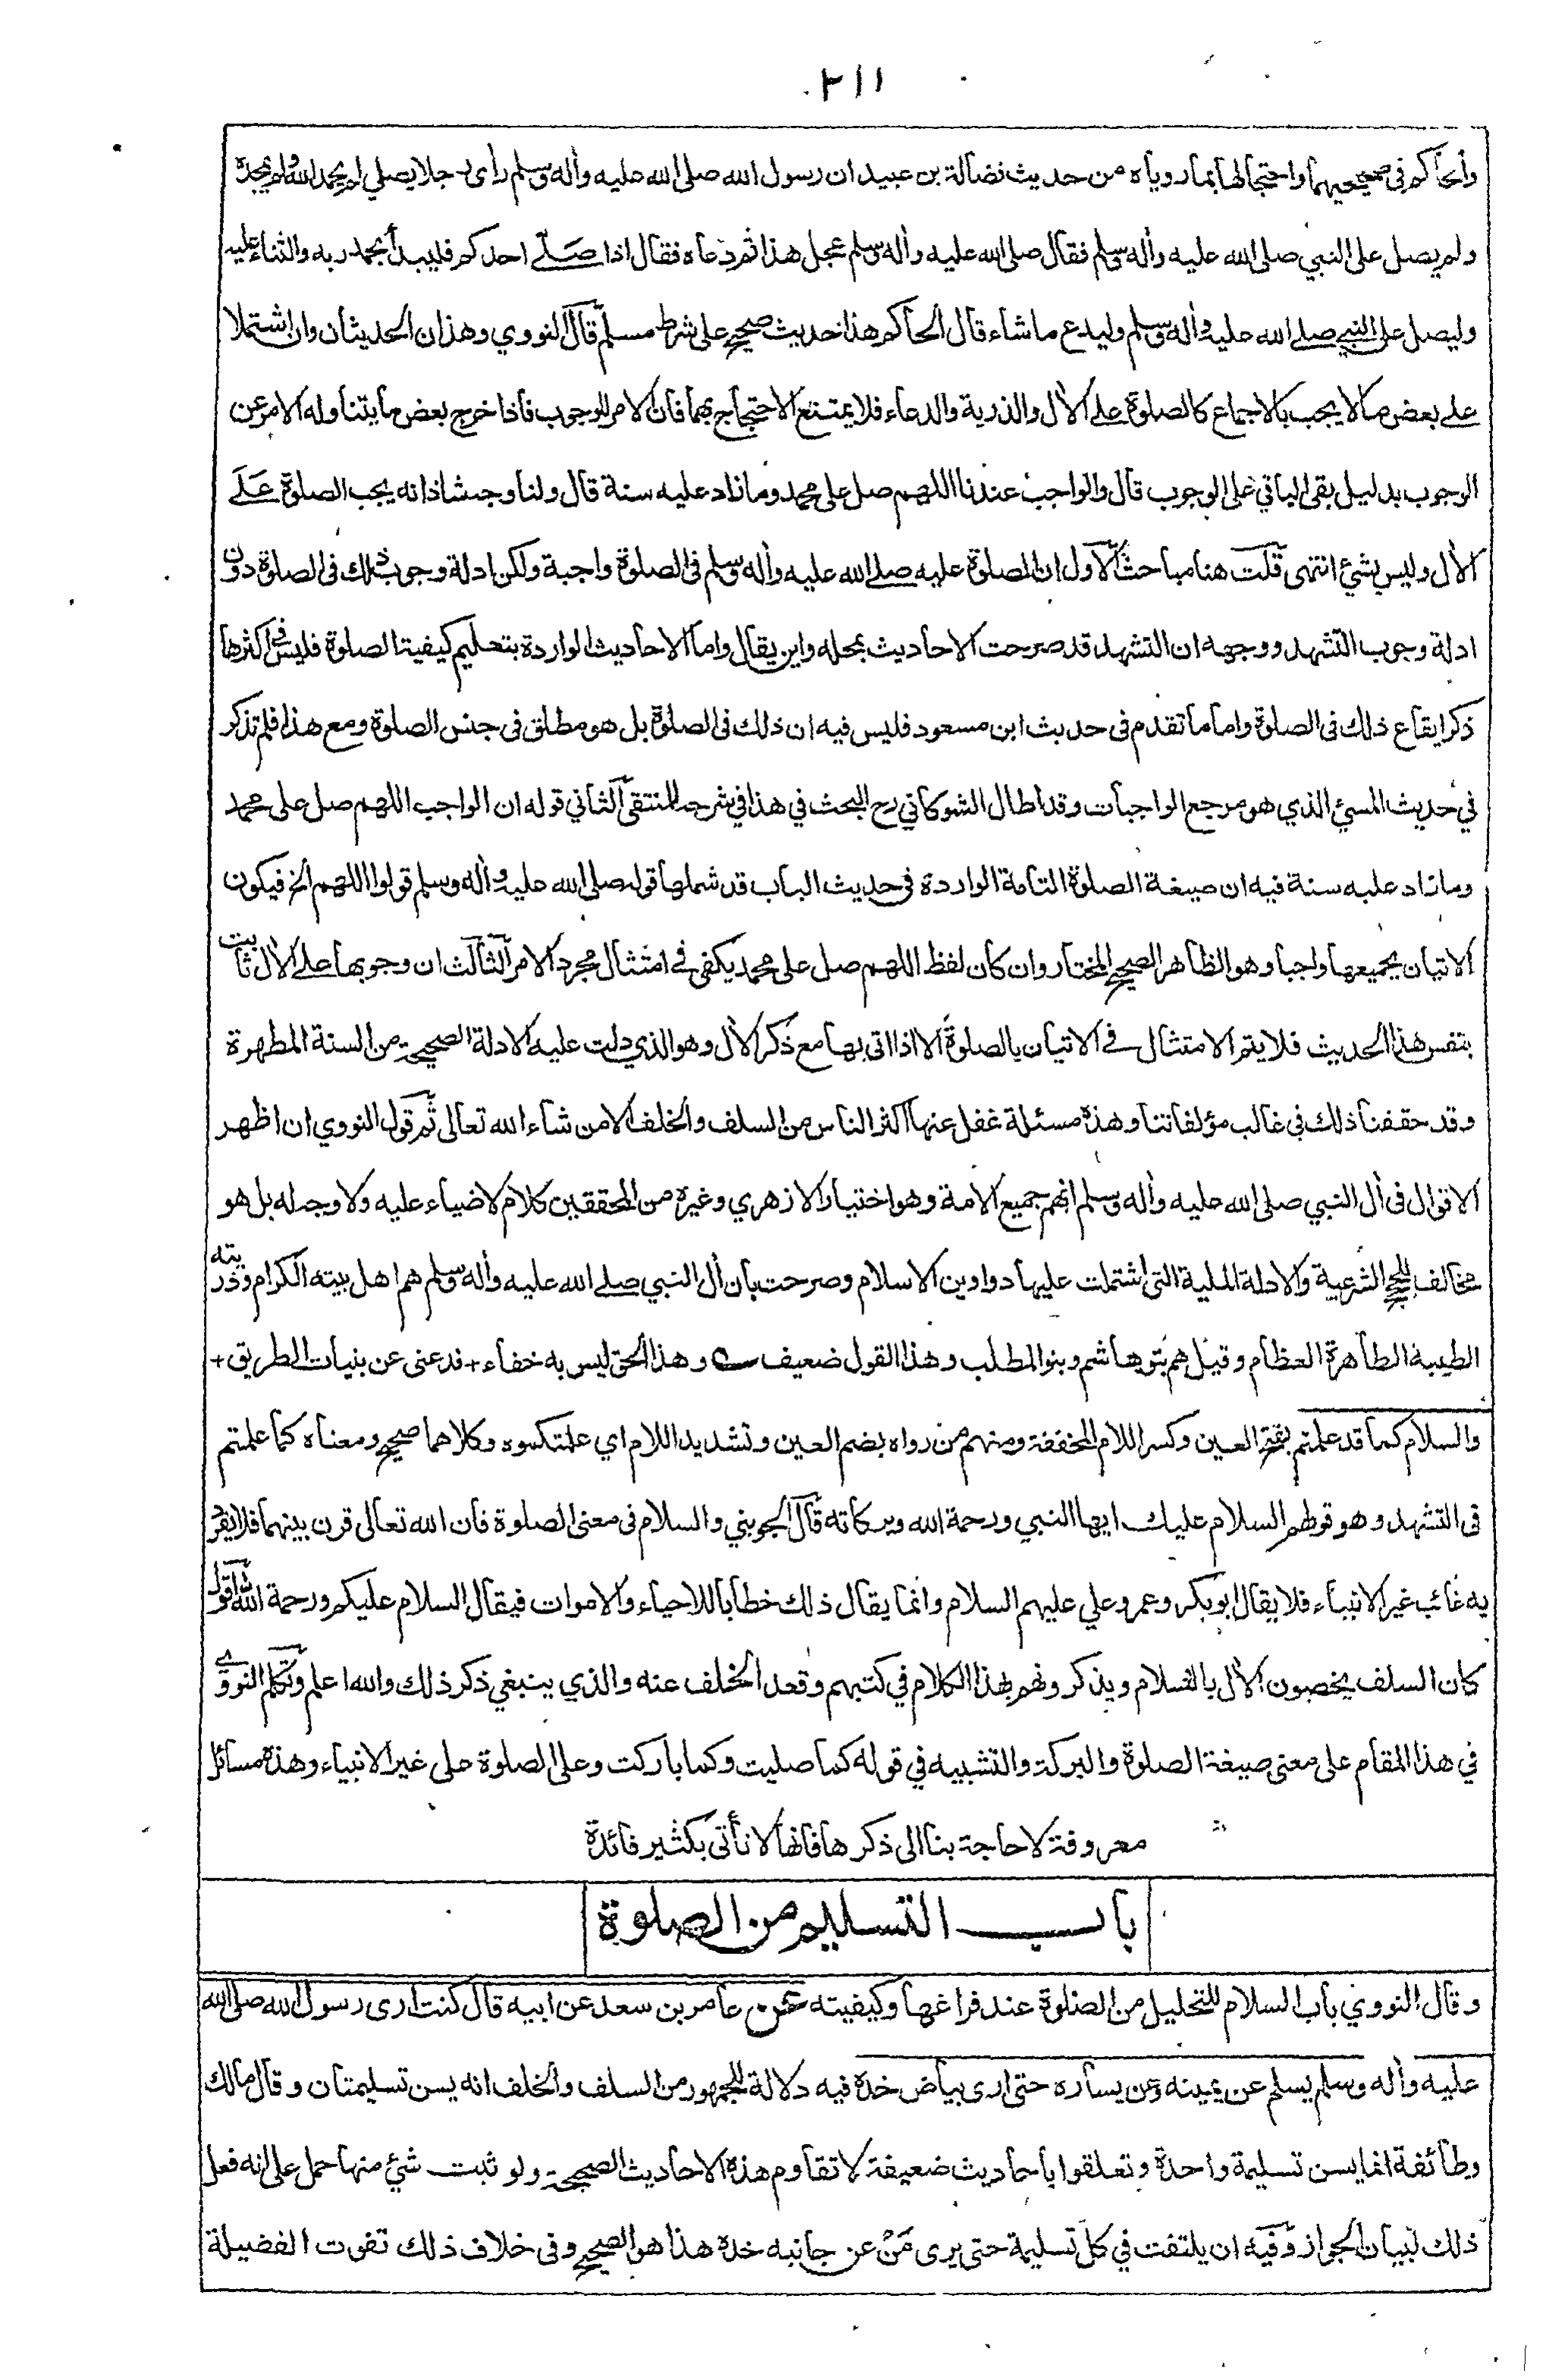 ٢١١
والحاكم في صحيحيهما واحتجا لها بما روياه من حديث فضالة بن عبيد ان رسول الله صلى الله عليه وأله وسلم رأى رجلا يصلي لم يحمد الله ولم يمجده
ولم يصل على النبي صلى الله عليه وأله وسلم فقال صلى الله عليه وأله وسلم عجل هذا ثم دعاه فقال اذا صلى احدكم فليبدأ بحمد ربه والثناء عليه
وليصل على النبي صلى الله عليه وأله وسلم وليدع ما شاء قال الحاكم هذا حديث صحيح على شرط مسلم قال النووي وهذان الحديثان وان اشتملا
على بعض ما لا يجب بالاجماع كالصلوة على الأل والذرية والدعاء فلا يمتنع الاحتجاج بهما فان الامر للوجوب فاذا خرج بعض ما يتناوله الامر عن
الوجوب بدليل بقي الباقي على الوجوب قال والواجب عندنا اللهم صل على محمد وما زاد عليه سنة قال ولنا وجه شاذ انه يجب الصلوة على
الأل وليس بشئ انتهى قلت هنا مباحث الاول ان الصلوة عليه صلى الله عليه وأله وسلم في الصلوة واجبة ولكن ادلة وجوب ذلك في الصلوة دون
ادلة وجوب التشهد ووجهه ان التشهد قد صرحت الاحاديث بمحله واين يقال واما الاحاديث الواردة بتعليم كيفية الصلوة فليس في اكثرها
ذكر ايقاع ذلك في الصلوة واما ما تقدم في حديث ابن مسعود فليس فيه ان ذلك في الصلوة بل هو مطلق في جنس الصلوة ومع هذا فلم تذكر
في حديث المسئ الذي هو مرجع الواجبات وقد اطال الشوكاني رح البحث في هذا في شرحه للمنتقى الثاني قوله ان الواجب اللهم صل على محمد
وما زاد عليه سنة فيه ان صيغة الصلوة التامة الواردة في حديث الباب قد شملها قوله صلى الله عليه وأله وسلم قولوا اللهم الخ فيكون
الاتيان بجميعها واجبا وهو الظاهر الصحيح المختار وان كان لفظ اللهم صل على محمد يكفي في امتثال مجرد الامر الثالث ان وجوبها على الأل ثابت
بنفس هذا الحديث فلا يتم الامتثال في الاتيان بالصلوة الا اذا اتى بها مع ذكر الأل وهو الذي دلت عليه الادلة الصحيحة من السنة المطهرة
وقد حققنا ذلك في غالب مؤلفاتنا وهذه مسئلة غفل عنها اكثر الناس من السلف والخلف الا من شاء الله تعالى ثم قول النووي ان اظهر
الاقوال في أل النبي صلى الله عليه وأله وسلم انهم جميع الامة وهو اختيار الازهري وغيره من المحققين كلام لا ضياء عليه ولا وجه له بل هو
مخالف للحجج الشرعية والادلة الملية التي اشتملت عليها دواوين الاسلام وصرحت بأن أل النبي صلى الله عليه وأله وسلم هم اهل بيته الكرام وذريته
الطيبة الطاهرة العظام وقيل هم بنو هاشم وبنو المطلب وهذا القول ضعيف وهذا الحق ليس به خفاء + فدعني عن بنيات الطريق +
والسلام كما قد علمتم بفتح العين وكسر اللام المخففة ومنهم من رواه بضم العين وتشديد اللام اي علمتكموه وكلاهما صحيح ومعناه كما علمتم
في التشهد وهو قولهم السلام عليك ايها النبي ورحمة الله وبركاته قال الجويني والسلام في معنى الصلوة فان الله تعالى قرن بينهما فلا يفرد
به غائب غير الانبياء فلا يقال ابوبكر وعمر وعلي عليهم السلام وانما يقال ذلك خطابا للاحياء والاموات فيقال السلام عليكم ورحمة الله اقول
كان السلف يخصون الأل بالسلام ويذكرونهم بهذا الكلام في كتبهم وقعد الخلف عنه والذي ينبغي ذكر ذلك والله اعلم وتكلم النووي
في هذا المقام على معنى صيغة الصلوة والبركة والتشبيه في قوله كما صليت وكما باركت وعلى الصلوة على غير الانبياء وهذه مسائل
معروفة لا حاجة بنا الى ذكرها فانها لا تأتي بكثير فائدة
باب التسليم من الصلوة
وقال النووي باب السلام للتحليل من الصلوة عند فراغها وكيفيته عن عامر بن سعد عن ابيه قال كنت ارى رسول الله صلى الله
عليه وأله وسلم يسلم عن يمينه وعن يساره حتى ارى بياض خده فيه دلالة للجمهور من السلف والخلف انه يسن تسليمتان وقال مالك
وطائفة انما يسن تسليمة واحدة وتعلقوا بأحاديث ضعيفة لا تقاوم هذه الاحاديث الصحيحة ولو ثبت شئ منها حمل على انه فعل
ذلك لبيان الجواز وفيه ان يلتفت في كل تسليمة حتى يرى من عن جانبه خده هذا هو الصحيح وفي خلاف ذلك تفوت الفضيلة